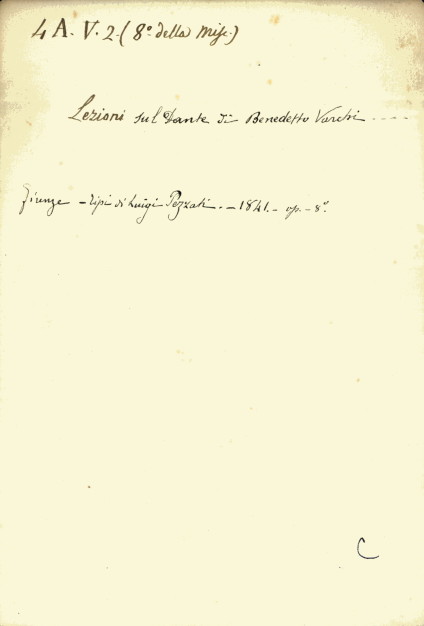 4 A. V. 2. (8.° della Misc.)
Lezioni sul Dante di Benedetto Varchi ....
Firenze - tipi di Luigi Pezzati. - 1841. - op. - 8.°
C